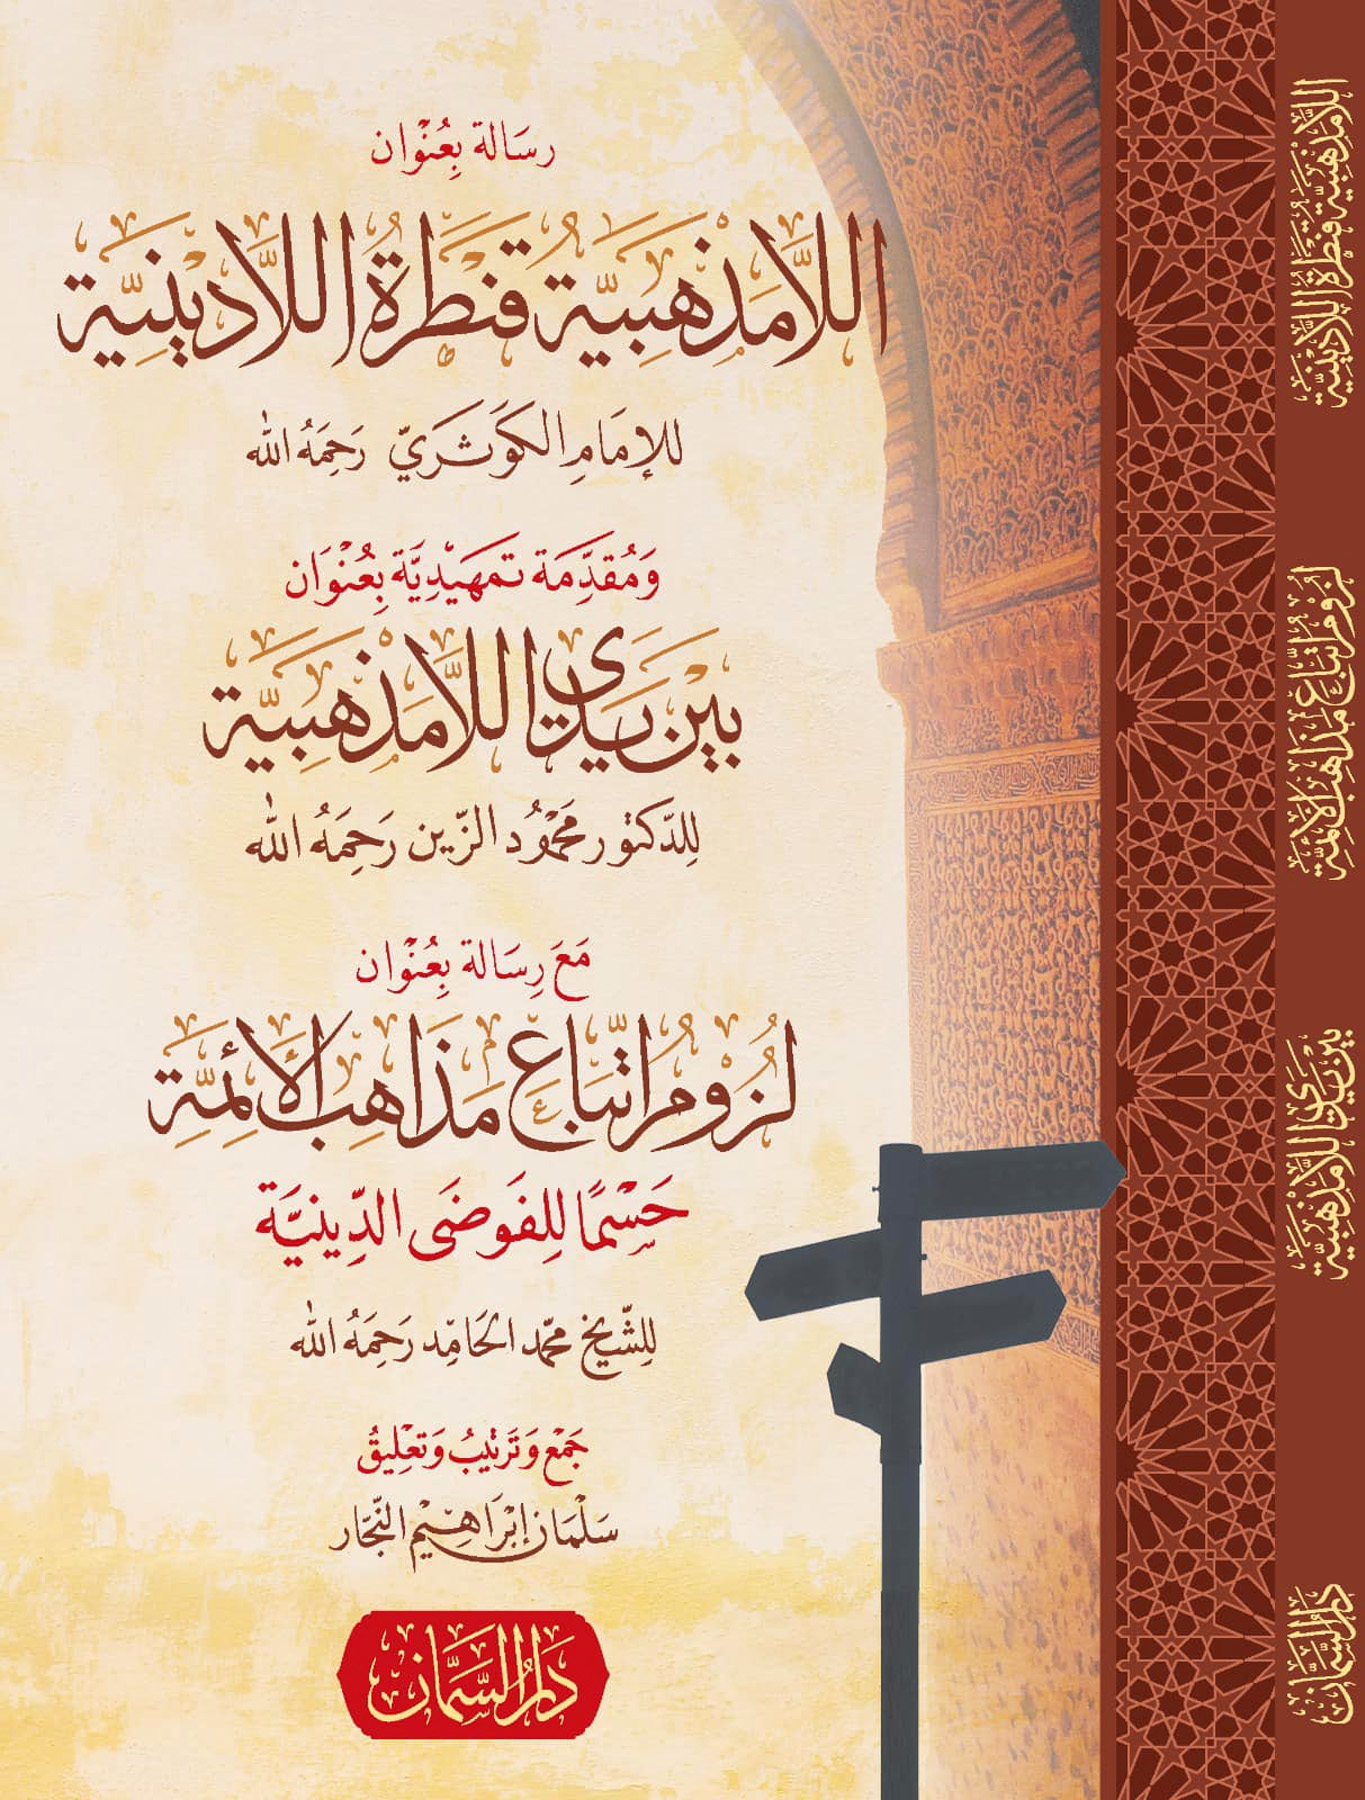 رسَالة بِعُنْوان
اللَّامَذْهَبِيَّة قَنْطَرَةُ اللَّادِينِيَّة
للإمَامِ الكَوْثَرَيّ رَحِمَهُ الله
وَمُقَدِّمَة تَمهَيْدِيَّة بِعُنْوَان
بَيْنَ يَدَيِ اللَّامَذْهَبِيَّة
لِلدّكتور محَمْوُد الزّين رَحِمَهُ الله
مَعَ رِسَالة بِعُنْوان
لُزُومُ اتِّبَاعِ مَذَاهِبِ الأَئِمَّةِ
حَسْمًا لِلفَوضَى الدِّينيَّة
لِلشّيخ محمّد الحَامِد رَحِمَهُ الله
جَمْع وَتَرتيبُ وَتعْلِيقُ
سَلْمَان إبْرَاهِيْم النّجّار
دَارُ السَّمَّان
اللَّامَذْهَبِيَّة قَنْطَرَةُ اللَّادِينِيَّة
لُزُومُ اتِّبَاعِ مَذَاهِبِ الأَئِمَّةِ
بَيْنَ يَدَيِ اللَّامَذْهَبِيَّة
دَارُ السَّمَّان